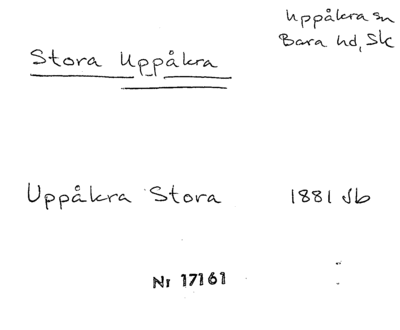 Uppåkra sn
Bara hd, Sk
Stora Uppåkra
Uppåkra Stora 1881 Jb
Nr 17161